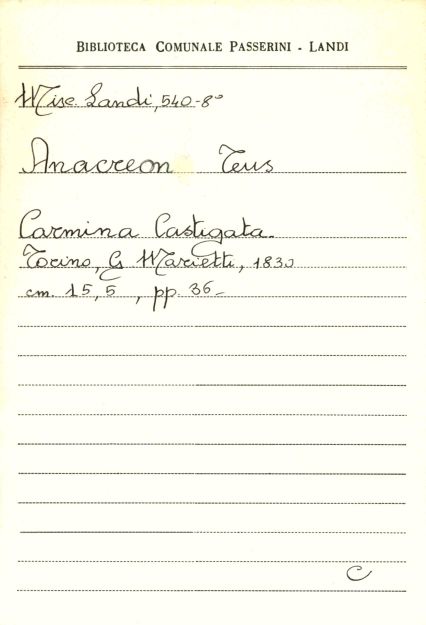 BIBLIOTECA COMUNALE PASSERINI - LANDI
Misc. Landi, 540-8°
Anacreon Teus
Carmina Castigata.
Torino, G Marietti, 1830
cm. 15,5, pp. 36-
C